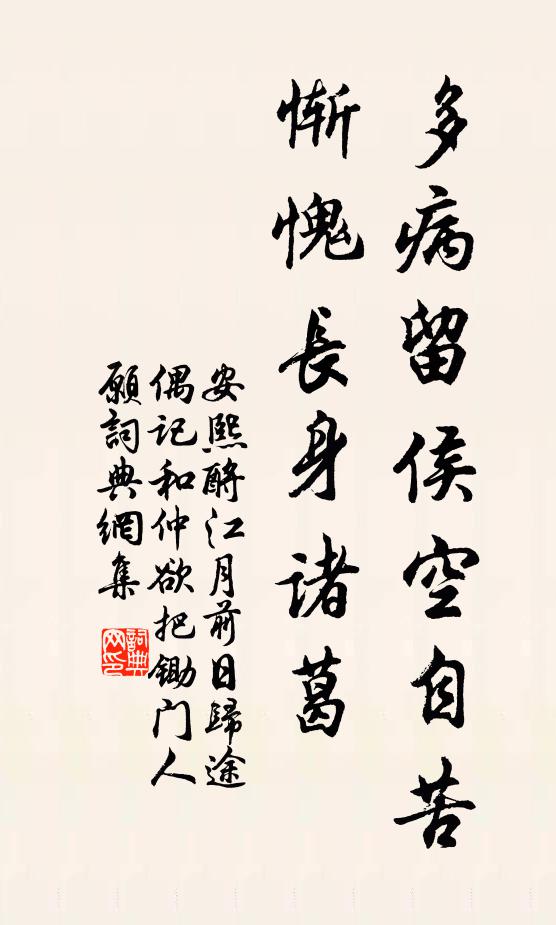 多病留侯空自苦
慚愧長身諸葛
安熙酹江月前日歸途
偶记和仲欲把鋤門人
願詞典網集
詞典
网印